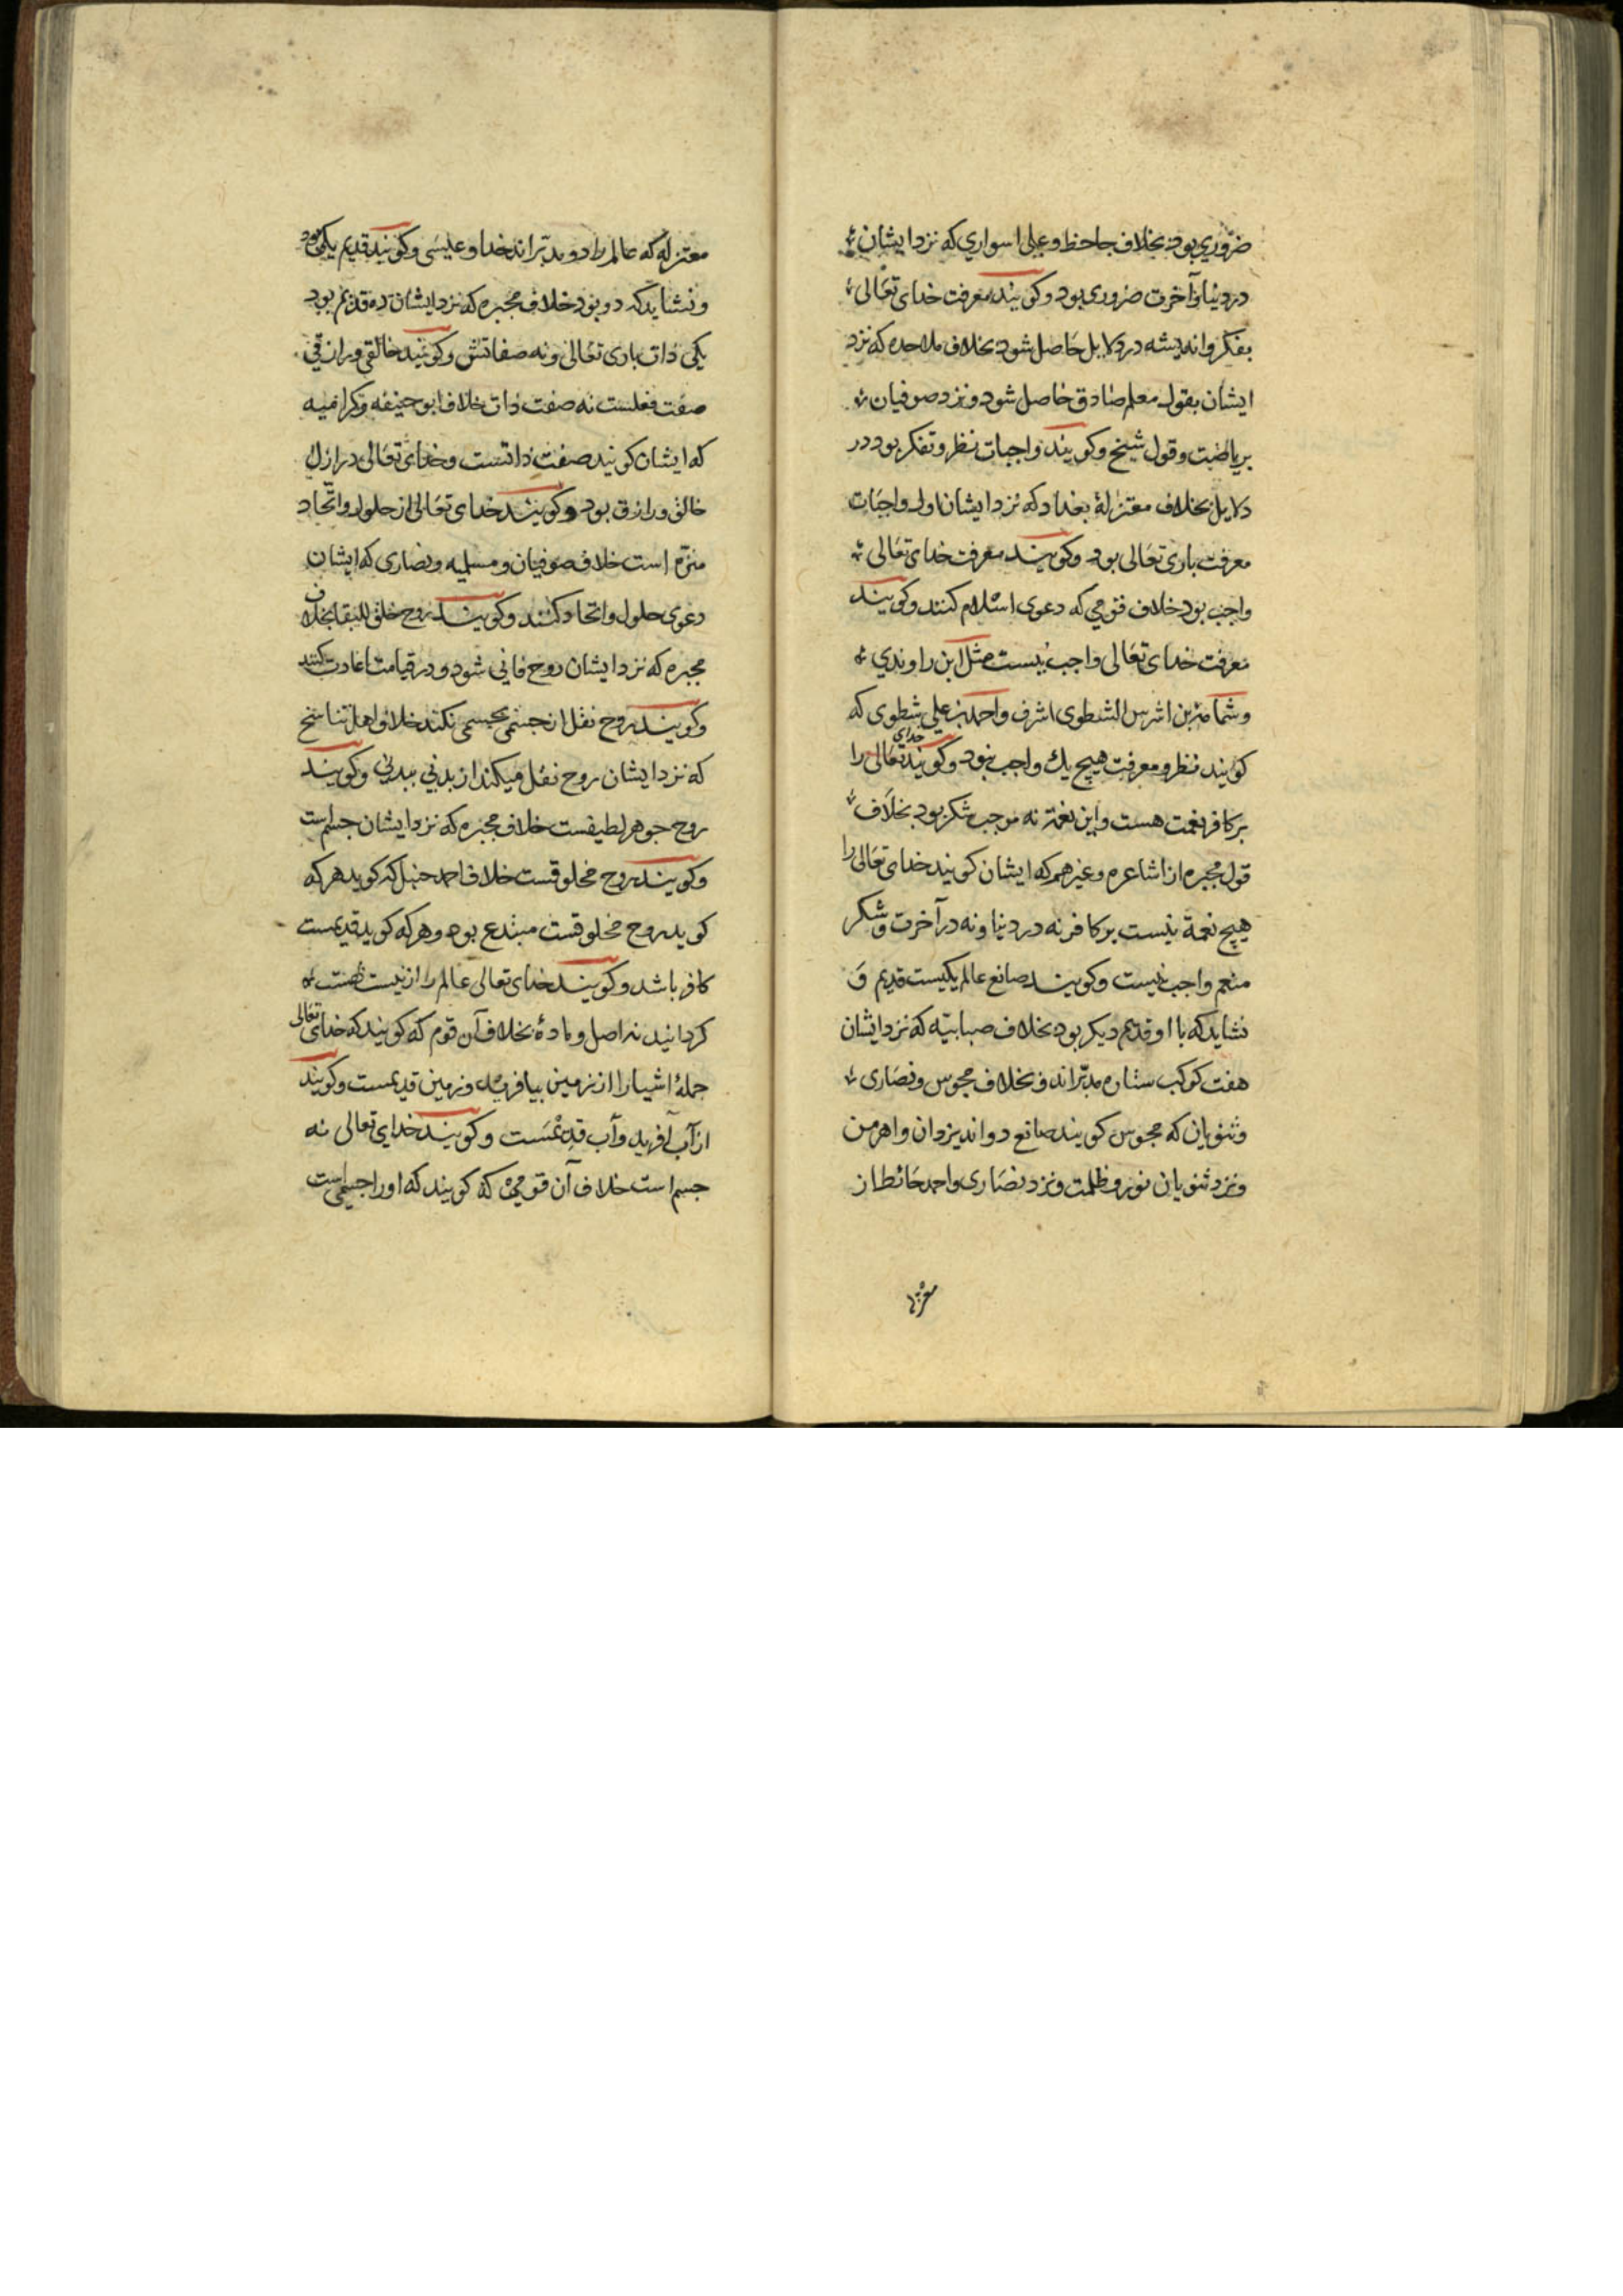 ضروري بود بخلاف جاحظ وعلى اسواري كه نزد ايشان
در دنيا وآخرت ضرورى بود وكويند معرفت خداى تعالى
بفكر وانديشه در دلايل حاصل شود بخلاف ملاحده كه نزد
ايشان بقول معلم صادق حاصل شود ونزد صوفيان
برياضت وقول شيخ وكويند واجبات نظر وتفكر بود در
دلايل بخلاف معتزلۀ بغداد كه نزد ايشان اول واجبات
معرفت بارى تعالى بود وكويند معرفت خداى تعالى
واجب بود خلاف قومي كه دعوى اسلام كنند وكويند
معرفت خداى تعالى واجب نيست مثل ابن راوندي
وشمامة بن اشرس الشطوى اشرف واحمد بن علي شطوى كه
كويند نظر ومعرفت هيچ يك واجب نبود وكويند خداي تعالى را
بر كافر نعمت هست واين نعمة نه موجب شكر بود بخلاف
قول مجبره از اشاعره وغيرهم كه ايشان كويند خداى تعالى را
هيچ نعمة نيست بر كافر نه در دنيا ونه در آخرت وشكر
منعم واجب نيست وكويند صانع عالم يكيست قديم و
نشايد كه با او قديم ديكر بود بخلاف صبابيّه كه نزد ايشان
هفت كوكب ستاره مدبّراند وبخلاف مجوس ونصارى
وثنويان كه مجوس كويند صانع دو اند يزدان واهرمن
ونزد ثنويان نور وظلمت ونزد نصارى واحمد حائط از
معتزله
معتزله كه عالم را دو مدبّراند خدا وعيسى وكويند قديم يكى بود
ونشايد كه دو بود خلاف مجبره كه نزد ايشان ده قديم بود
يكى ذات بارى تعالى ونه صفاتش وكويند خالقي ورازقي
صفت فعلست نه صفت ذات خلاف ابو حنيفه وكراميه
كه ايشان كويند صفت ذاتست وخداى تعالى در ازل
خالق ورازق بود وكويند خداى تعالى از حلول واتّحاد
منزّه است خلاف صوفيان ومسلميه ونصارى كه ايشان
دعوى حلول واتحاد كنند وكويند روح خلق للبقا بخلاف
مجبره كه نزد ايشان روح فاني شود ودر قيامت اعادت كنند
وكويند روح نقل از جسمى بجسمى نكند خلاف اهل تناسخ
كه نزد ايشان روح نقل ميكند از بدني ببدني وكويند
روح جوهر لطيفست خلاف مجبره كه نزد ايشان جسم است
وكويند روح مخلوقست خلاف احمد حنبل كه كويد هر كه
كويد روح مخلوقست مبتدع بود وهر كه كويد قديمست
كافر باشد وكويند خداى تعالى عالم را از نيست هست
كردانيد نه اصل ومادۀ بخلاف آن قوم كه كويند كه خداى تعالى
جملۀ اشيا را از زمين بيافريد وزمين قديمست وكويند
از آب آفريد وآب قديمست وكويند خداي تعالى نه
جسم است خلاف آن قومي كه كويند كه او را جسمى است